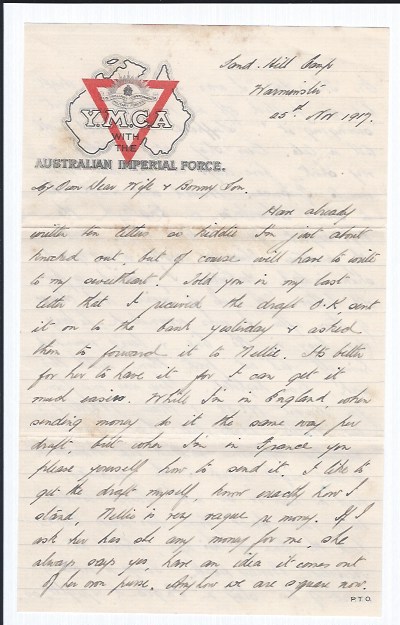 Sand Hill Camp
Warminster
25th Nov 1917.
Y.M.C.A
WITH
THE
AUSTRALIAN IMPERIAL FORCE.
My Own Dear Wife & Bonny Son.
Have already
written ten letters so kiddie I'm just about
knocked out, but of course will have to write
to my sweetheart. Told you in my last
letter that I received the draft O.K, sent
it on to the bank yesterday & asked
them to forward it to Nellie. Its better
for her to have it for I can get it
much easier. While I'm in England, when
sending money do it the same way per
draft, but when I'm in France you
please yourself how to send it. I like to
get the draft myself, know exactly how I
stand, Nellie is very vague re money. If I
ask her has she any money for me, she
always says yes, have an idea it comes out
of her own purse. Anyhow we are square now.
P.T.O.